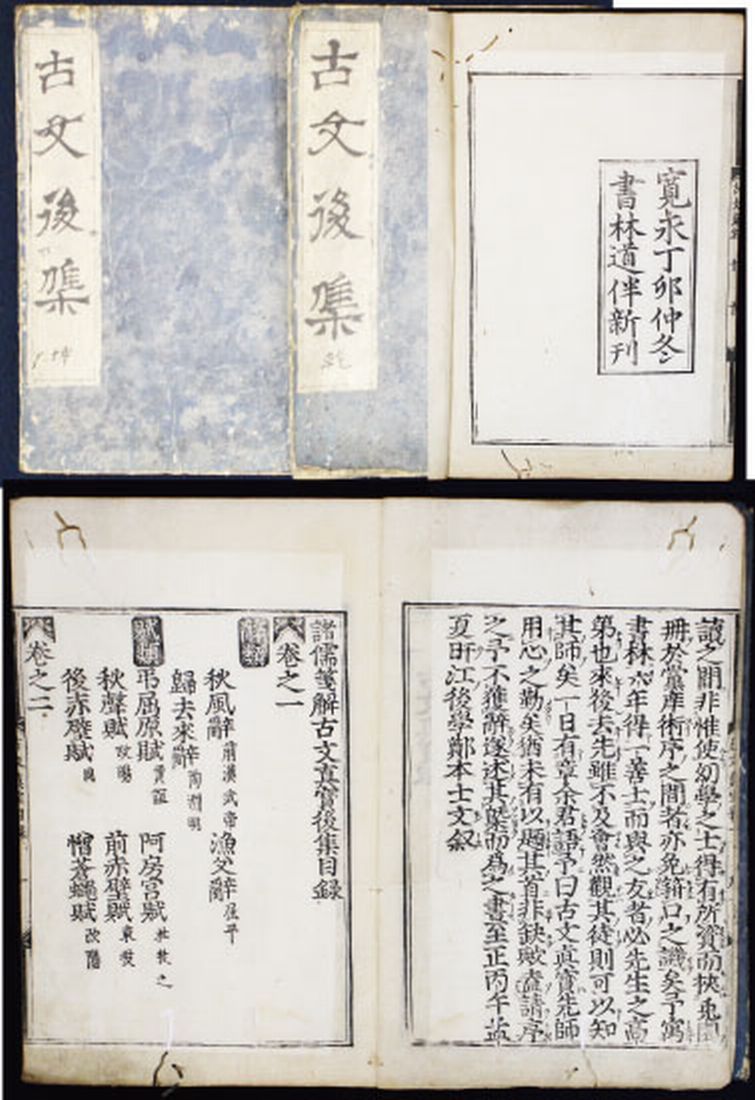 古文後集
乾
古文後集
坤
寛永丁卯仲冬
書林道伴新刊
讀之間非惟使幼學之士得有所資而挾兎園
冊於黨庠術序之間者亦免箝口之譏矣予寓
書林六年得一善士而與之友者必先生之高
第也來後去先雖不及會然觀其徒則可以知
其師矣一日有章余君語予曰古文眞寳先師
用心之勤矣猶未有以題其首非缺歟盍請序
之予不獲辭遂述其槩而爲之書至正丙午孟
夏旴江後學鄭本士文叙
諸儒箋解古文眞寳後集目録
卷之一
辭類
秋風辭 前漢武帝 漁父辭 屈平
歸去來辭 陶淵明
賦類
弔屈原賦 賈誼 阿房宮賦 杜牧之
秋聲賦 歐陽 前赤壁賦 東坡
後赤壁賦 憎蒼蠅賦 歐陽
卷之二